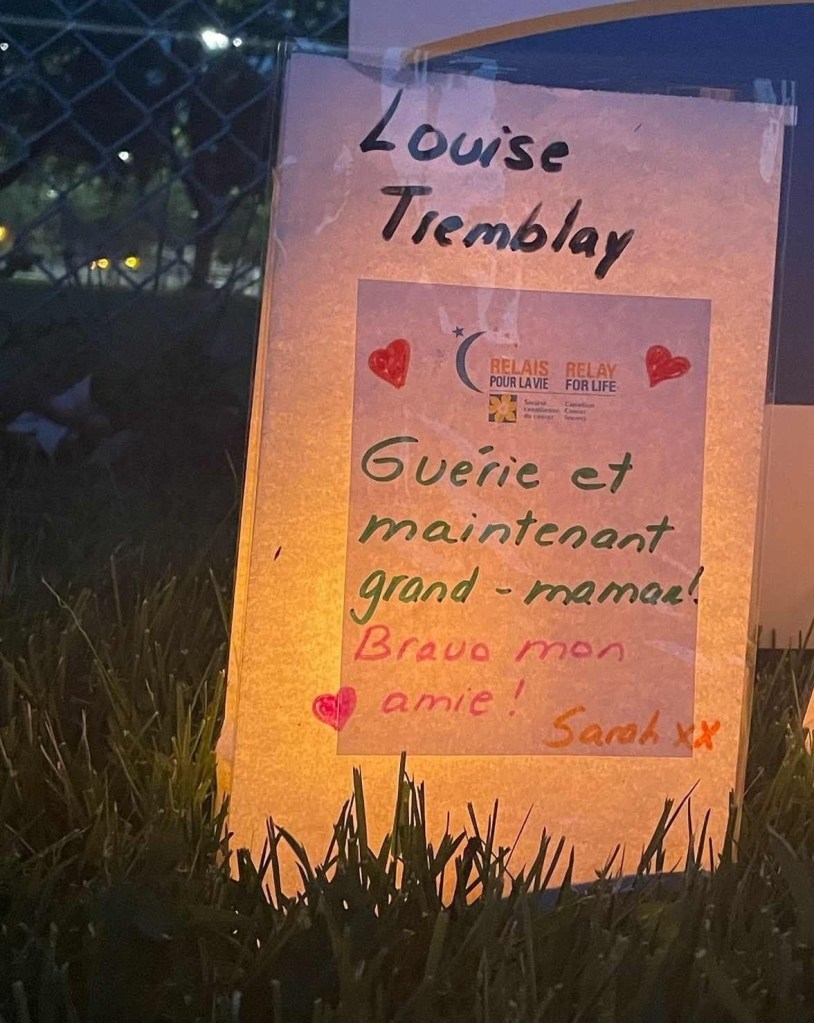 Louise
Tremblay
RELAIS
POUR LA VIE
RELAY
FOR LIFE
Société
canadienne
du cancer
Canadian
Cancer
Society
Guérie et
maintenant
grand-maman!
Bravo mon
amie!
Sarah xx